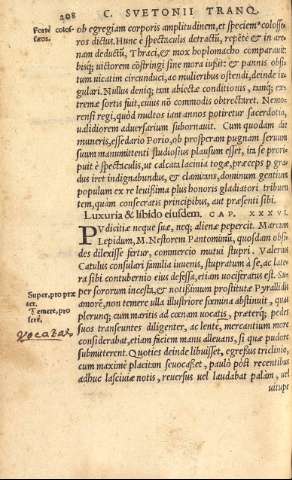 208 C. SVETONII TRANQ.
ob egregiam corporis amplitudinem, et speciem colosse
ros dictus. Hunc è spectaculis detractũ, repẽte & in are
nam deductũ, Thraci, & mox hoplomacho comparauit:
bisq; uictorem cõstringi sine mora iussit: & pannis obsi
tum uicatim circunduci, ac mulieribus ostendi, deinde iu
gulari. Nullus deniq; tam abiectæ conditionis, tamq; ex
tremæ sortis fuit, cuius nõ commodis obtrectaret. Nemo
rensi regi, quòd multos iam annos potiretur sacerdotio,
ualidiorem aduersarium subornauit. Cum quodam die
muneris, essedario Porio, ob prosperam pugnam seruum
suum manumittenti studiosius plausum esset, ita se prori
puit è spectaculis, ut calcata lacinia togæ, præceps p gra
dus iret indignabundus, & clamitans, dominum gentium
populum ex re leuissima plus honoris gladiatori tribuen
tem, quàm consecratis principibus, aut præsenti sibi.
Luxuria & libido eiusdem. CAP. XXXVI.
PVdicitiæ neque suæ, neq; alienæ pepercit. Marcum
Lepidum, M. Nestorem Pantomimũ, quosdam obsi
des dilexisse fertur, commercio mutui stupri. Valerius
Catulus consulari familia iuuenis, stupratum à se, ac late
ra sibi contubernio eius defessa, etiam uociferatus est. Su
per sororum incesta, & notißimum prostitutæ Pyrallidis
amorẽ, non temere ulla illustriore fœmina abstinuit, quas
plerunq; cum maritis ad cœnam uocatis, præterq; pedes
suos transeuntes diligenter, ac lente, mercantium more
considerabat, etiam faciem manu alleuans, si quæ pudore
submitterent. Quoties deinde libuisset, egressus triclinio,
cum maximè placitam seuocasset, paulò pòst recentibus
adhuc lasciuiæ notis, reuersus uel laudabat palàm, uel
uitupe
Super, pro præ
ter.
Temere, pro
ferè.
vocatas